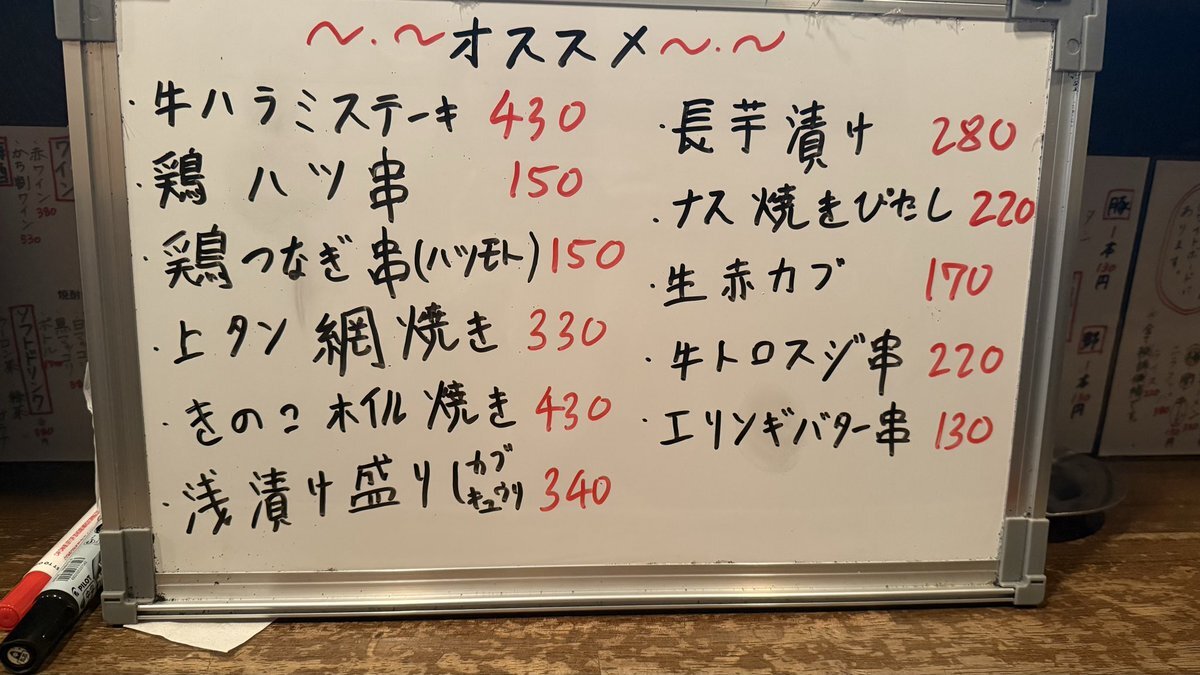 〜.〜オススメ〜.〜
・牛ハラミステーキ 430
・鶏ハツ串 150
・鶏つなぎ串(ハツモト) 150
・上タン網焼き 330
・きのこホイル焼き 430
・浅漬け盛り(カブ
キュウリ 340
・長芋漬け 280
・ナス焼きびたし 220
・生赤カブ 170
・牛トロスジ串 220
・エリンギバター串 130
ワイン
赤ワイン
380
530
焼酎
ソフトドリンク
豚
一本
130円
野
一本
PILOT